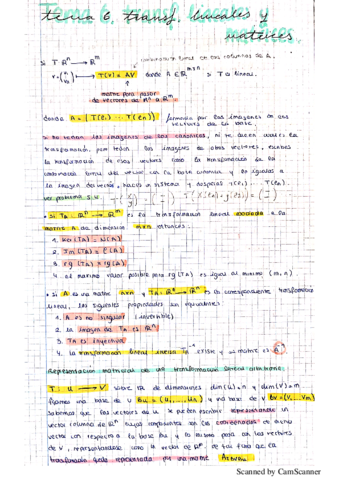 Tema 6. transf. lineales y matrices.
combinación lineal de las columnas de A.
• Si T ℝⁿ ⟶ ℝᵐ
T(v) = AV donde A ∈ ℝᵐˣⁿ ⇒ T es lineal.
matriz para pasar
de vectores de ℝⁿ a ℝᵐ
donde A = [T(e₁) ... T(eₙ)] formada por las imágenes de los
vectores de la base.
• Si no tengo las imágenes de las canónicas, ni te dicen cual es la
trasformación, pero tengo las imágenes de otros vectores, escribes
la trasformación de esos vectores como la trasformación de la
combinación lineal del vector con la base canónica y lo igualas a
la imagen del vector, haces un sistema y despejas T(e₁) ... T(en).
ver problema 5.
• Si TA: ℝⁿ ⟶ ℝᵐ es la transformación lineal asociada a la
matriz A de dimensión mxn entonces:
1. Ker(TA) = N(A)
2. Im(TA) = C(A)
3. rg(TA) = rg(A)
4. el máximo valor posible para rg(TA) es igual al mínimo (m,n).
• Si A es una matriz nxn y TA: ℝⁿ ⟶ ℝⁿ es la correspondiente transformación
lineal, las siguientes propiedades son equivalentes:
1. A es no singular (invertible)
2. la imagen de TA es ℝⁿ
3. TA es inyectiva
4. la transformación lineal inversa T⁻¹A existe y su matriz es A⁻¹
Representación matricial de una transformación lineal arbitraria:
T: U ⟶ V sobre ℝ de dimensiones dim(U)=n y dim(V)=m
fijamos una base de U Bu = (u₁, ..., un) y una base de V Bv = (v₁, ... vm)
Sabemos que los vectores de U se pueden escribir representándose un
vector columna de ℝⁿ cuyas componentes son las coordenadas de dicho
vector con respecto a la base Bu y lo mismo pasa con los vectores
de V, representándose como un vector de ℝᵐ, de tal forma que la
trasformación queda representada por una matriz ABvBu
Scanned by CamScanner